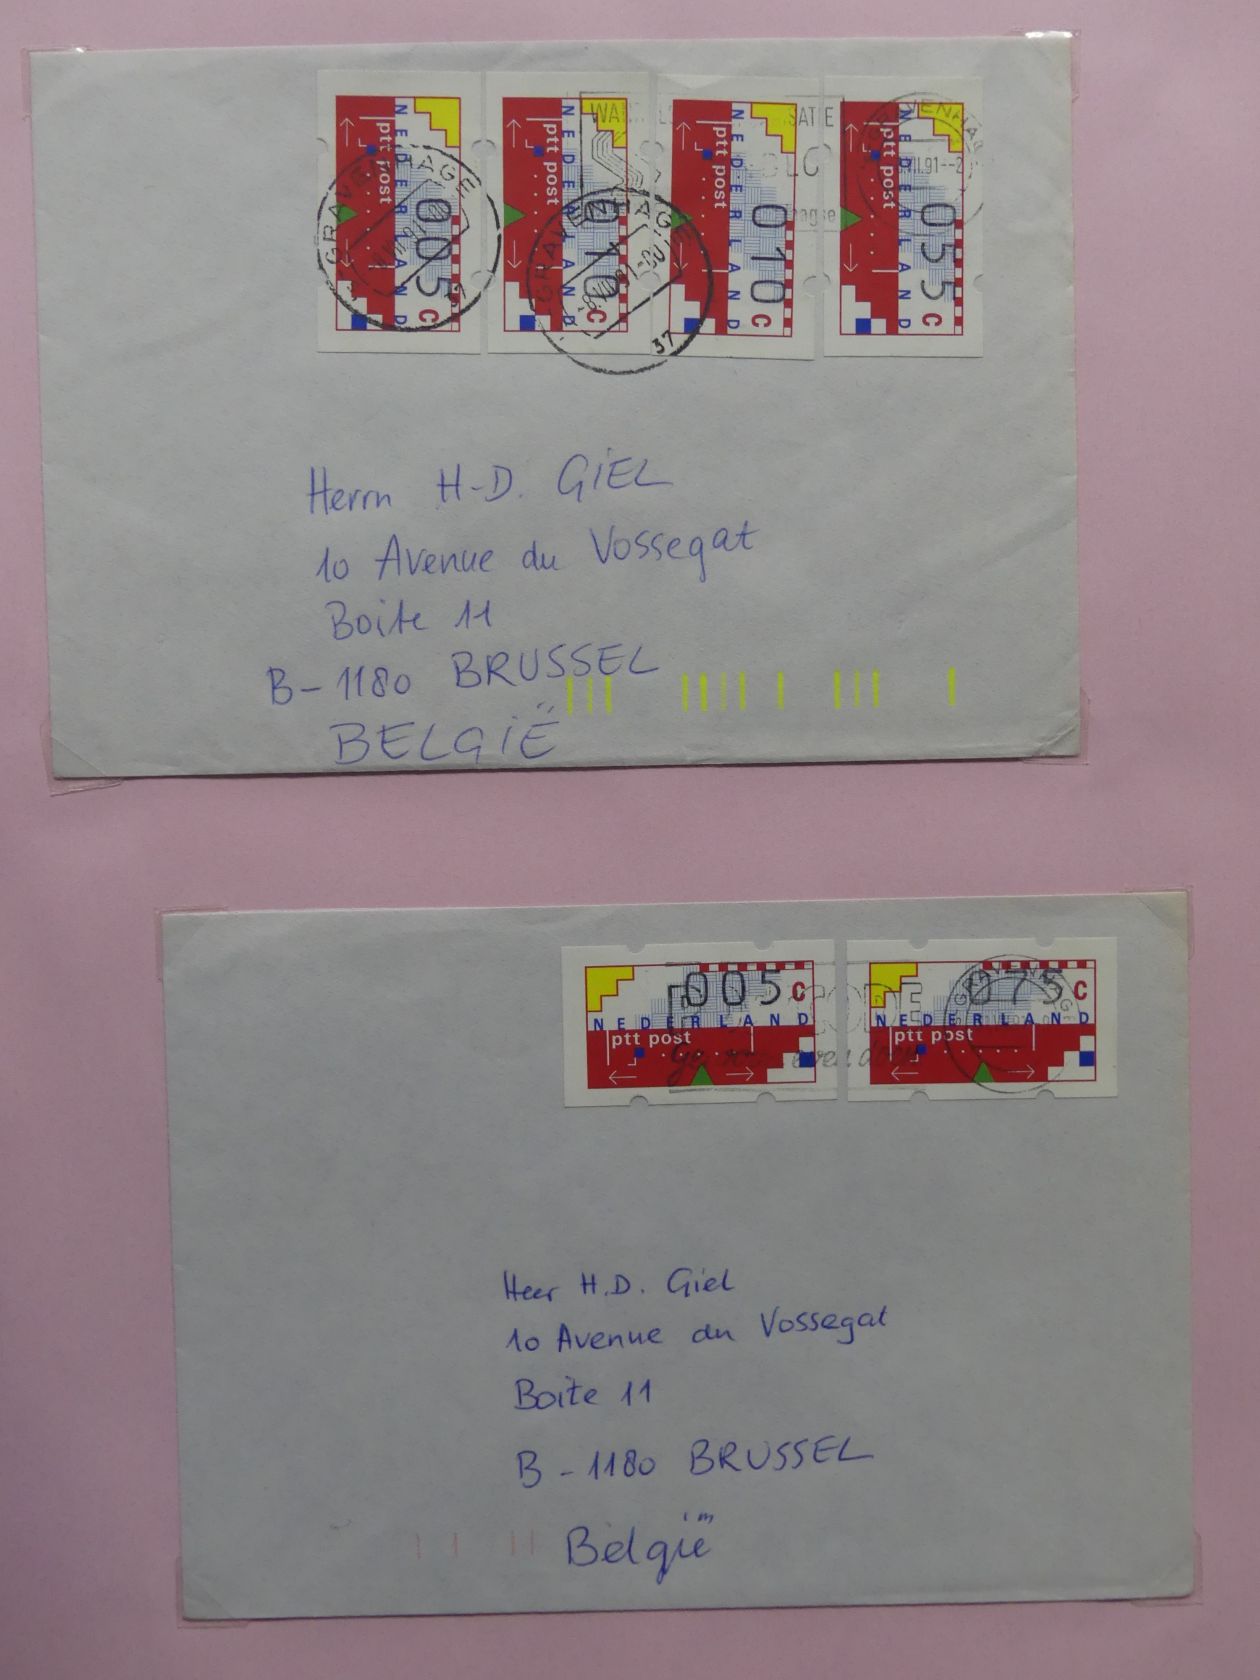 NEDERLAND
ptt post
005 C
NEDERLAND
ptt post
010 C
NEDERLAND
ptt post
010 C
NEDERLAND
ptt post
055 C
GRAVENHAGE
37
GRAVENHAGE
37
SATIE
Herrn H-D. GIEL
10 Avenue du Vossegat
Boite 11
B-1180 BRUSSEL
BELGIË
005 C
NEDERLAND
ptt post
075 C
NEDERLAND
ptt post
even door
Heer H.D. Giel
10 Avenue du Vossegat
Boite 11
B-1180 BRUSSEL
België